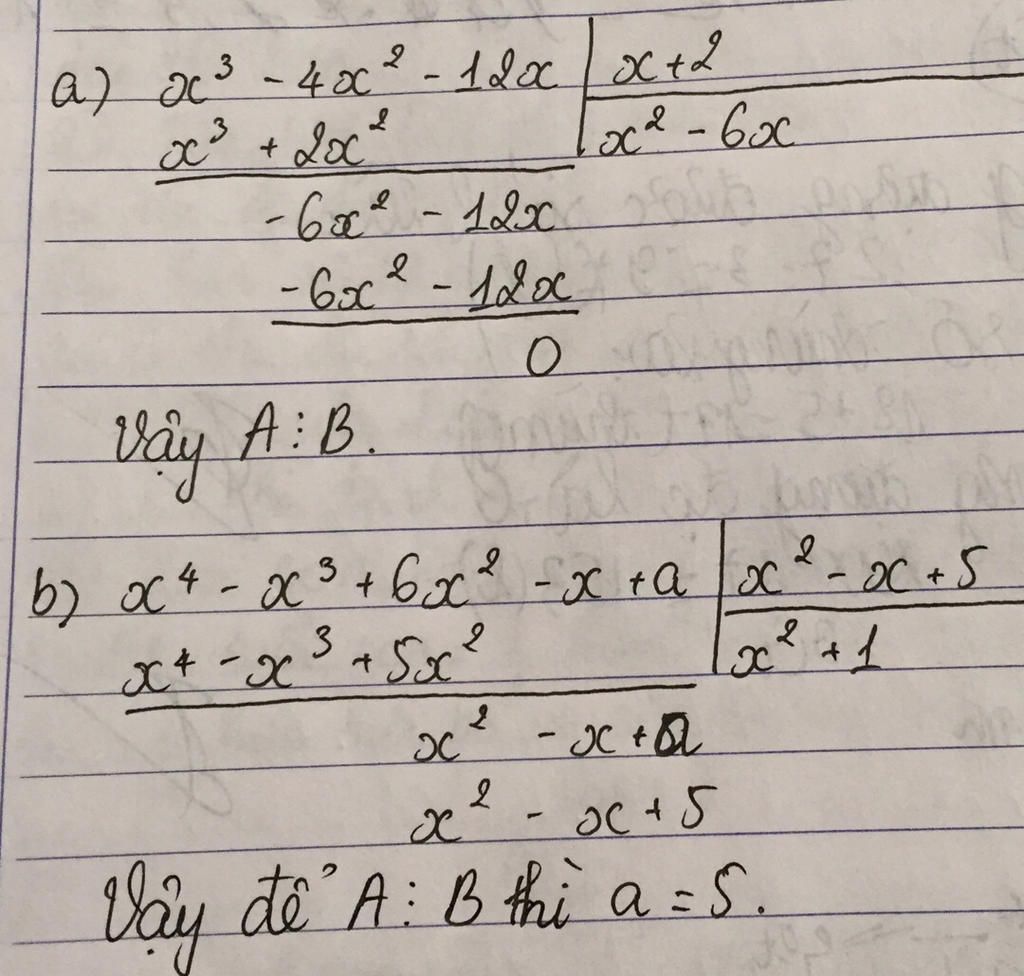 a) x³ - 4x² - 12x | x + 2
x³ + 2x² | x² - 6x
-6x² - 12x
-6x² - 12x
0
Vậy A ⋮ B.
b) x⁴ - x³ + 6x² - x + a | x² - x + 5
x⁴ - x³ + 5x² | x² + 1
x² - x + a
x² - x + 5
Vậy để A ⋮ B thì a = 5.